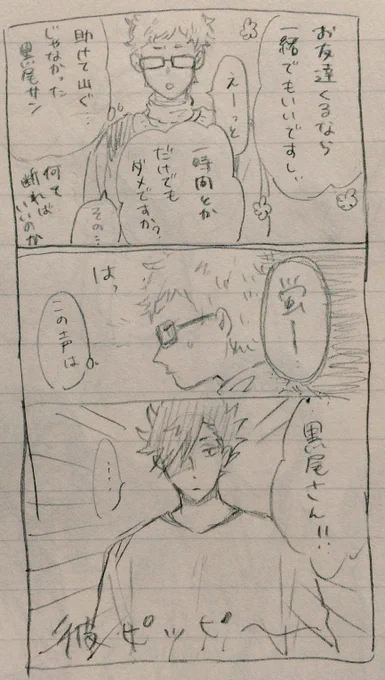 お友達くるなら
一緒でもいいですし、
えーっと
一時間とか
だけでも
ダメですか？
その…
助けて山ぐ…
じゃなかった
黒尾サン
何て
断れば
いいのか
蛍ー
はっ
この声は
黒尾さん!!
……
彼ピッピ〜